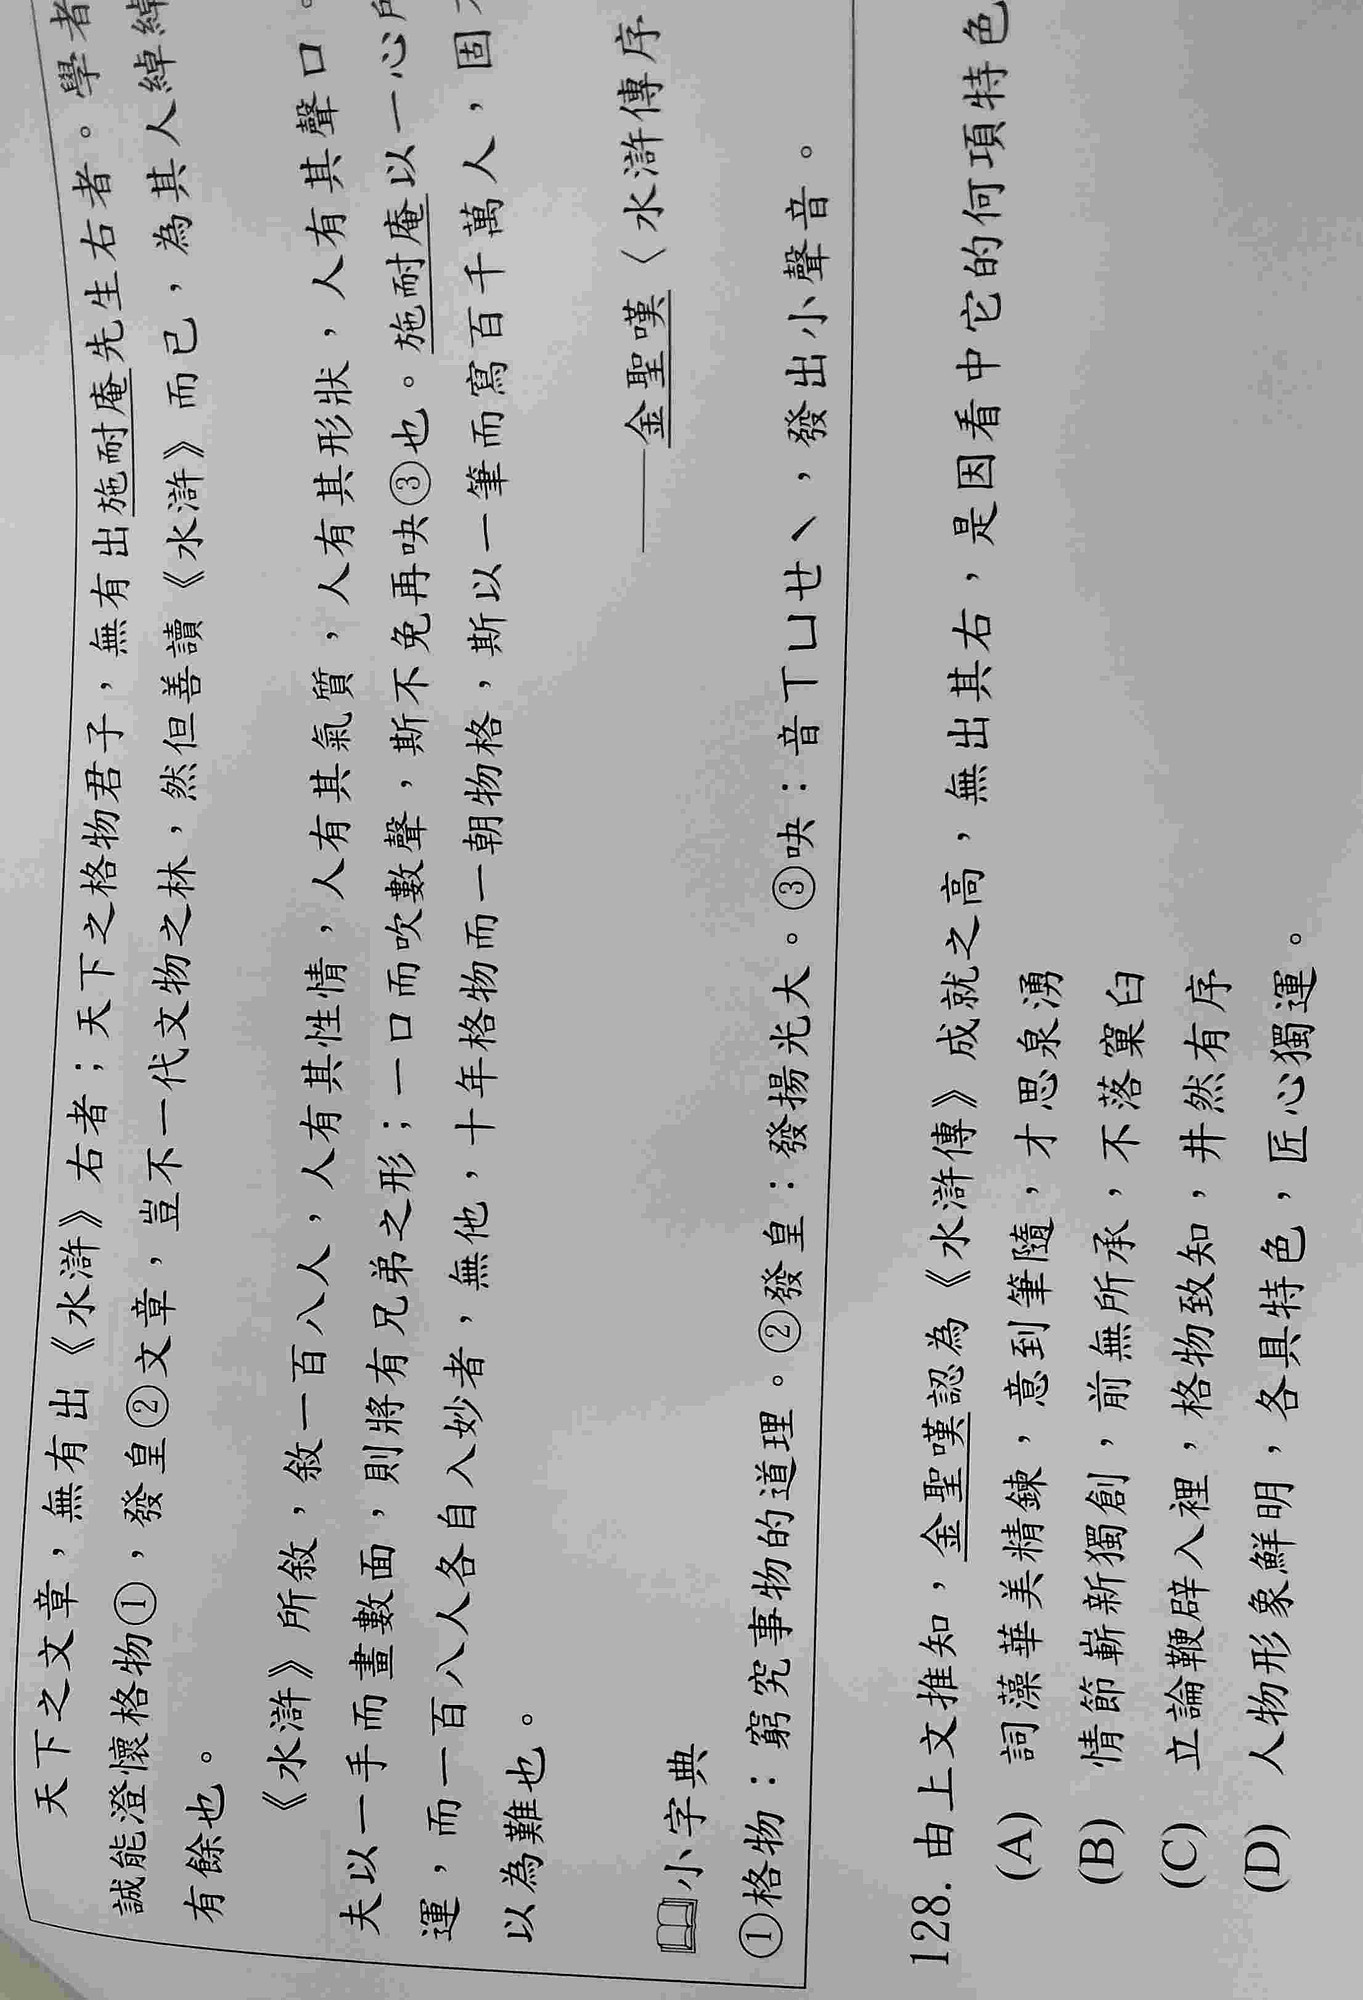 天下之文章，無有出《水滸》右者；天下之格物君子，無有出施耐庵先生右者。學者
誠能澄懷格物①，發皇②文章，豈不一代文物之林，然但善讀《水滸》而已，為其人綽綽
有餘也。
《水滸》所敘，敘一百八人，人有其性情，人有其氣質，人有其形狀，人有其聲口。
夫以一手而畫數面，則將有兄弟之形；一口而吹數聲，斯不免再吷③也。施耐庵以一心所
運，而一百八人各自入妙者，無他，十年格物而一朝物格，斯以一筆而寫百千萬人，固
以為難也。
——金聖嘆〈水滸傳序
小字典
①格物：窮究事物的道理。②發皇：發揚光大。③吷：音ㄒㄩㄝˋ，發出小聲音。
128. 由上文推知，金聖嘆認為《水滸傳》成就之高，無出其右，是因看中它的何項特色
(A) 詞藻華美精鍊，意到筆隨，才思泉湧
(B) 情節嶄新獨創，前無所承，不落窠臼
(C) 立論鞭辟入裡，格物致知，井然有序
(D) 人物形象鮮明，各具特色，匠心獨運。